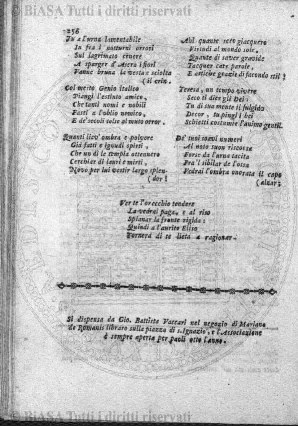 © BiASA Tutti i diritti riservati
256
Tu a l'urna lamentabile
In fra i notturni orrori
Sul lagrimato cenere
A sparger d'Ascra i fiori
Vanne bruna la vesta e sciolta
(il crin.
Col mesto Genio italico
Piangi l'estinto amico,
Che tanti nomi e nobili
Fasti a l'oblio nemico,
E de' secoli tolse al muto orror.
Quanti liev' ombra e polvere
Già fatti e ignudi spirti
Che un dì le tempia ottennero
Cerchiar di lauri e mirti,
Novo per lui vestir largo splen-
(dor!
Ahi quante vote giacquero
Virtudi al mondo sole,
Quante di saver gravide
Tacquer care parole,
E attiche grazie di facondo stil!
Teresa, un tempo vivere
Seco ti dier gli Dei:
Tu di sua mente il fulgido
Decor, tu pingi i bei
Schietti costumi e l'animo gentil.
De' tuoi soavi numeri
Al noto suon riscossa
Forse de l'urna tacita
Fra l sibilar de l'ossa
Vedrai l'ombra onorata il capo
(alzar;
Ver te l'orecchio tendere
La vedrai paga, e al riso
Spianar la fronte rigida:
Quindi a l'aurito Eliso
Tornerà di te lieta a ragionar.
Si dispensa da Gio. Battista Vaccari nel negozio di Mariano
de Romanis libraro sulla piazza di s. Ignazio, e l'Associazione
è sempre aperta per paoli otto l'anno.
© BiASA Tutti i diritti riservati